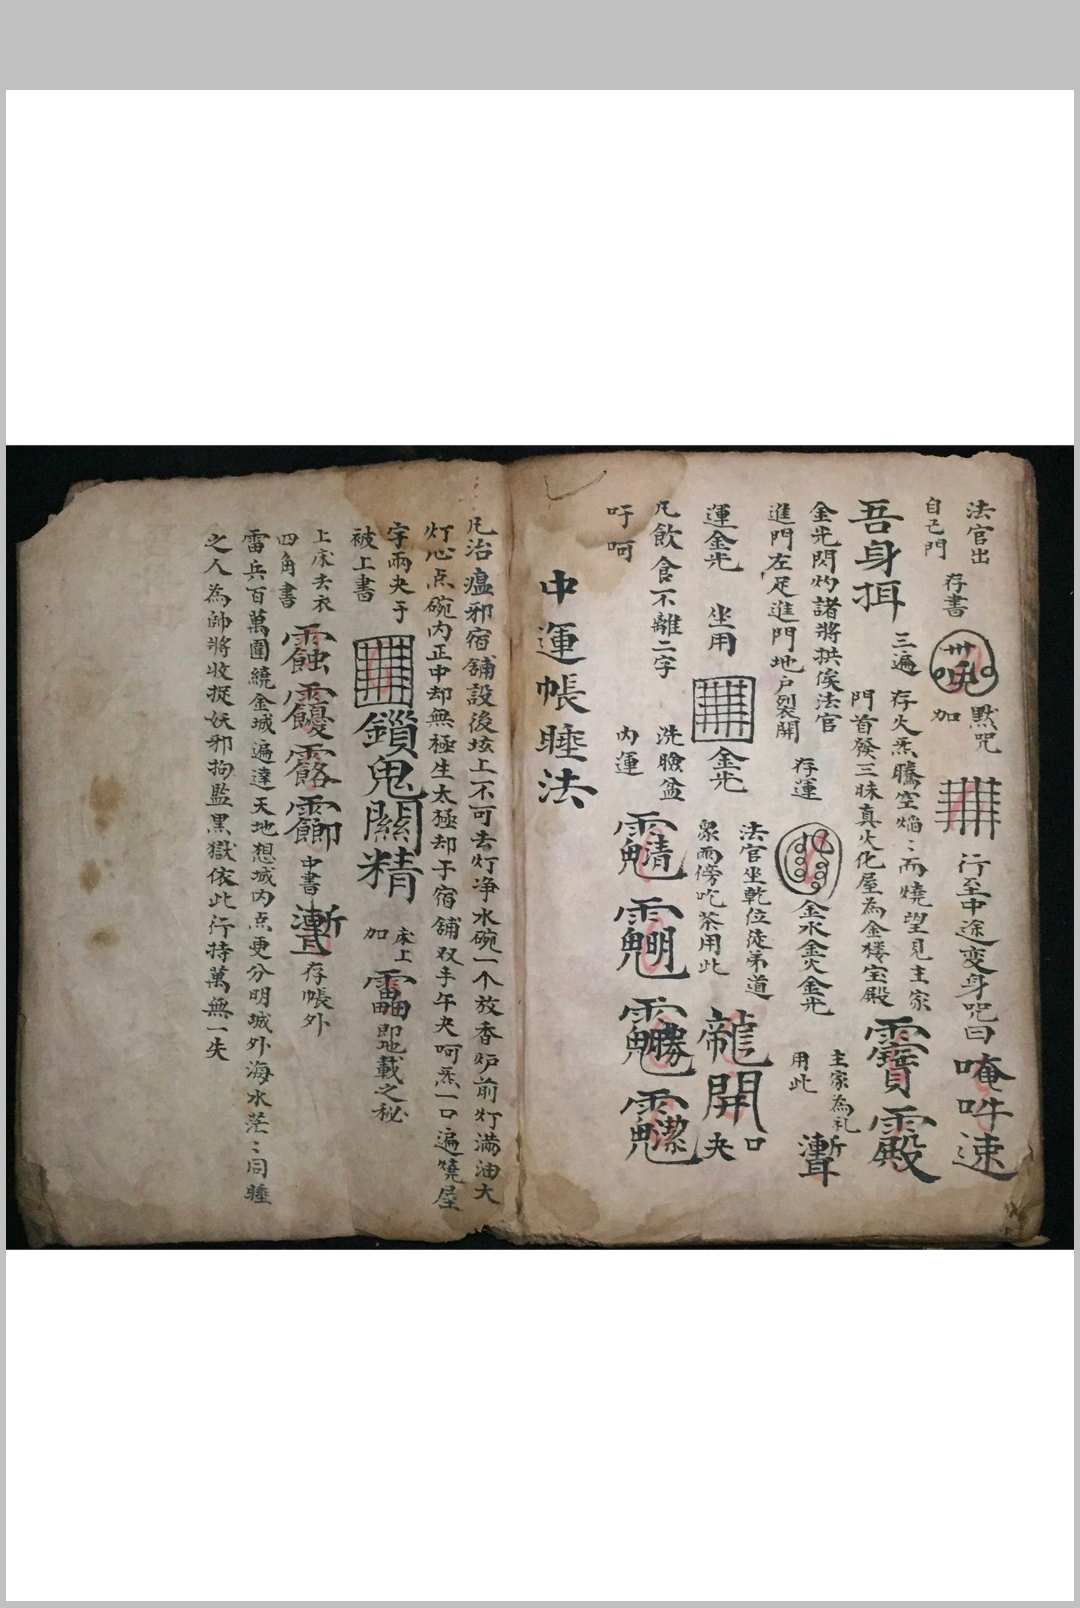 法官出
自己門 存書
默咒
加
行至中途变身咒曰 唵吽速
吾身 三遍 存火炁騰空焔〻而燒望見主家
門首發三昧真火化屋為金楼宝殿
金光閃灼諸將拱侯法官
進門左足進門地户裂開
存運
金水金火金光 主家為礼
用此
運金光 坐用 金光 法官坐乾位徒弟道
衆两傍吃茶用此
龍開
口夬
凡飲食不離二字 洗臉盆
吁呵 内運
中運帳睡法
凡治瘟邪宿舖設後垓上不可去灯净水碗一个放香炉前灯满油大
灯心点碗内正中却無極生太極却于宿舖双手午夬呵炁一口遍燒屋
字兩夬于
被上書
鎖鬼關精
床上
加 即地載之秘
上床去衣
四角書
中書 存帳外
雷兵百萬圍繞金城遍達天地想城内点更分明城外海水茫〻同睡
之人為帥將收捉妖邪拘監黑獄依此行持萬無一失